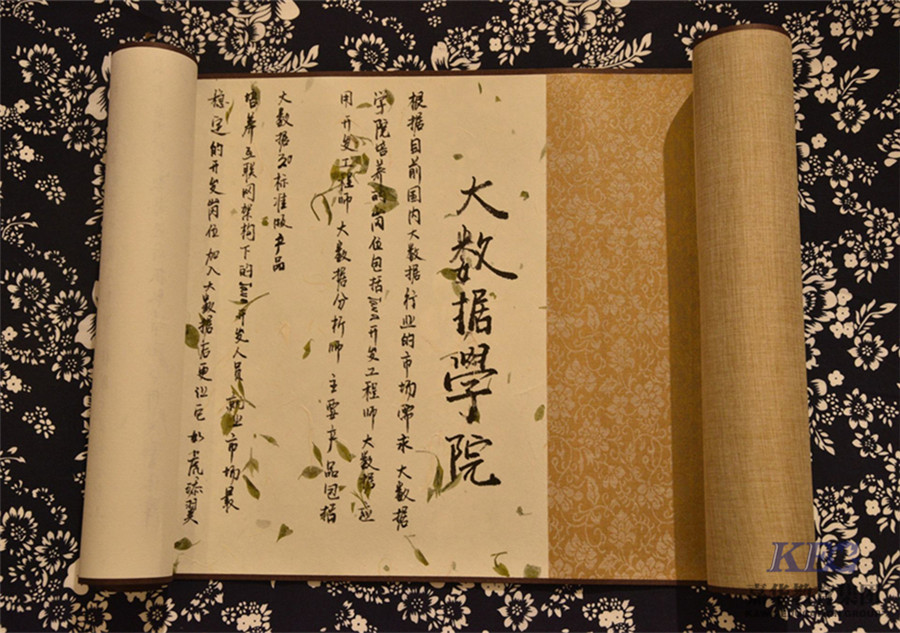 大数据學院
根据目前国内大数据行业的市场需求 大数据
学院培养的岗位包括java开发工程师 大数据应
用开发工程师 大数据分析师 主要产品包括
大数据的标准版产品
培养互联网架构下的java开发人员 就业市场最
稳定的开发岗位 加入大数据后更 如虎添翼